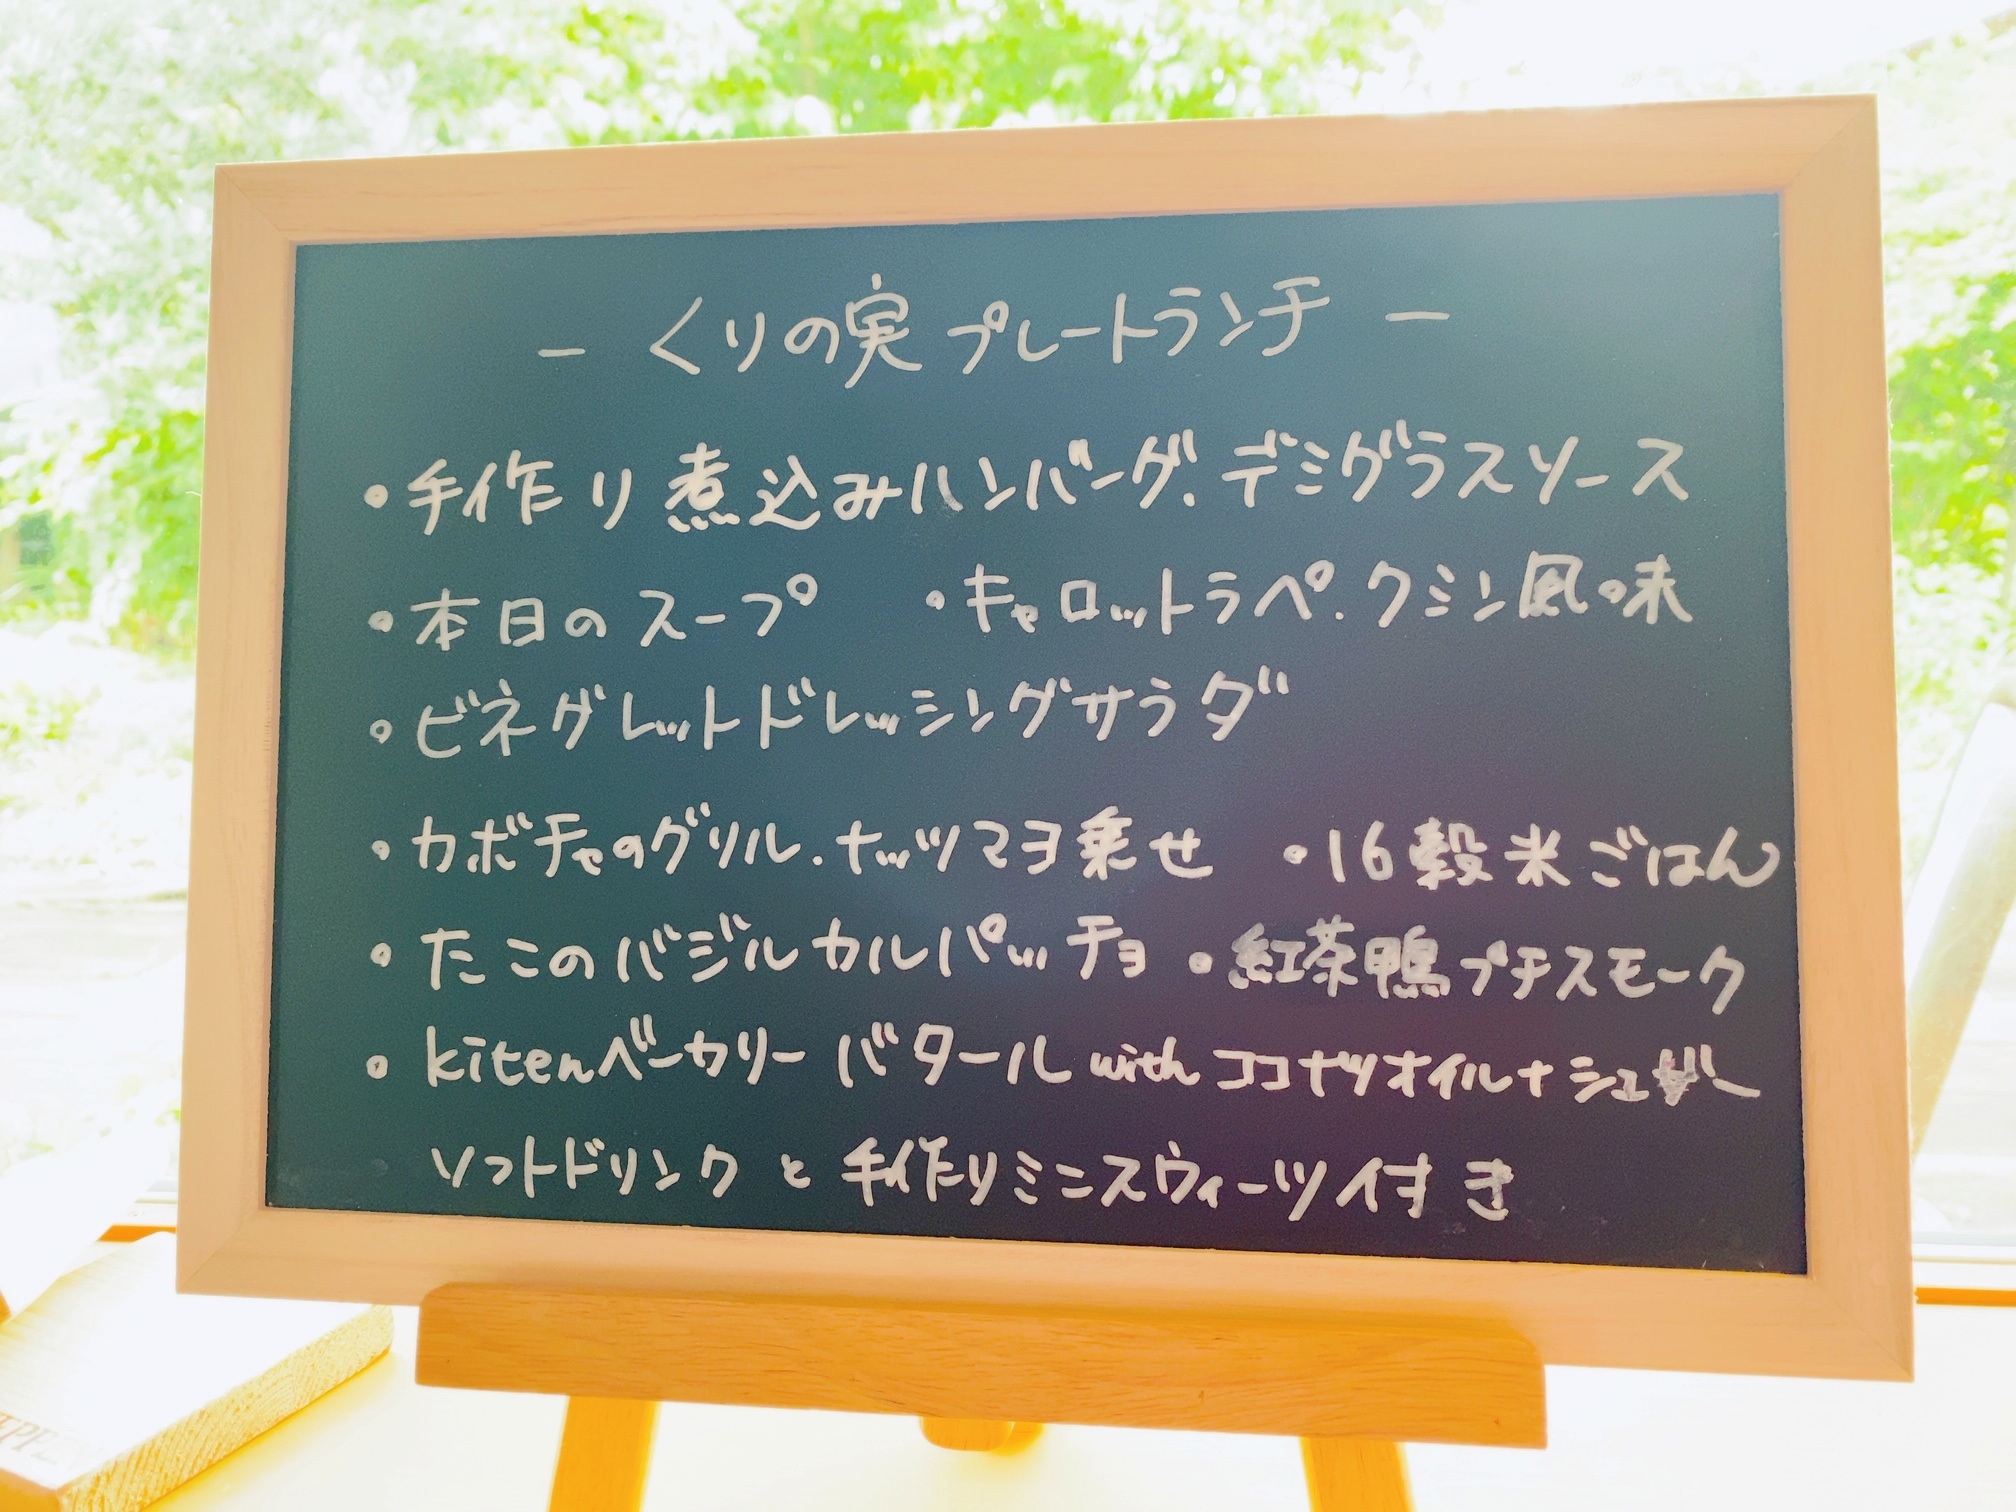 - くりの実 プレートランチ -
• 手作り 煮込みハンバーグ. デミグラスソース
• 本日のスープ • キャロットラペ. クミン風味
• ビネグレットドレッシングサラダ
• カボチャのグリル. ナッツマヨ乗せ • 16穀米ごはん
• たこのバジルカルパッチョ • 紅茶鴨プチスモーク
• kitenベーカリー バタール with ココナツオイル+シュガー
ソフトドリンク と 手作りミニスウィーツ付き